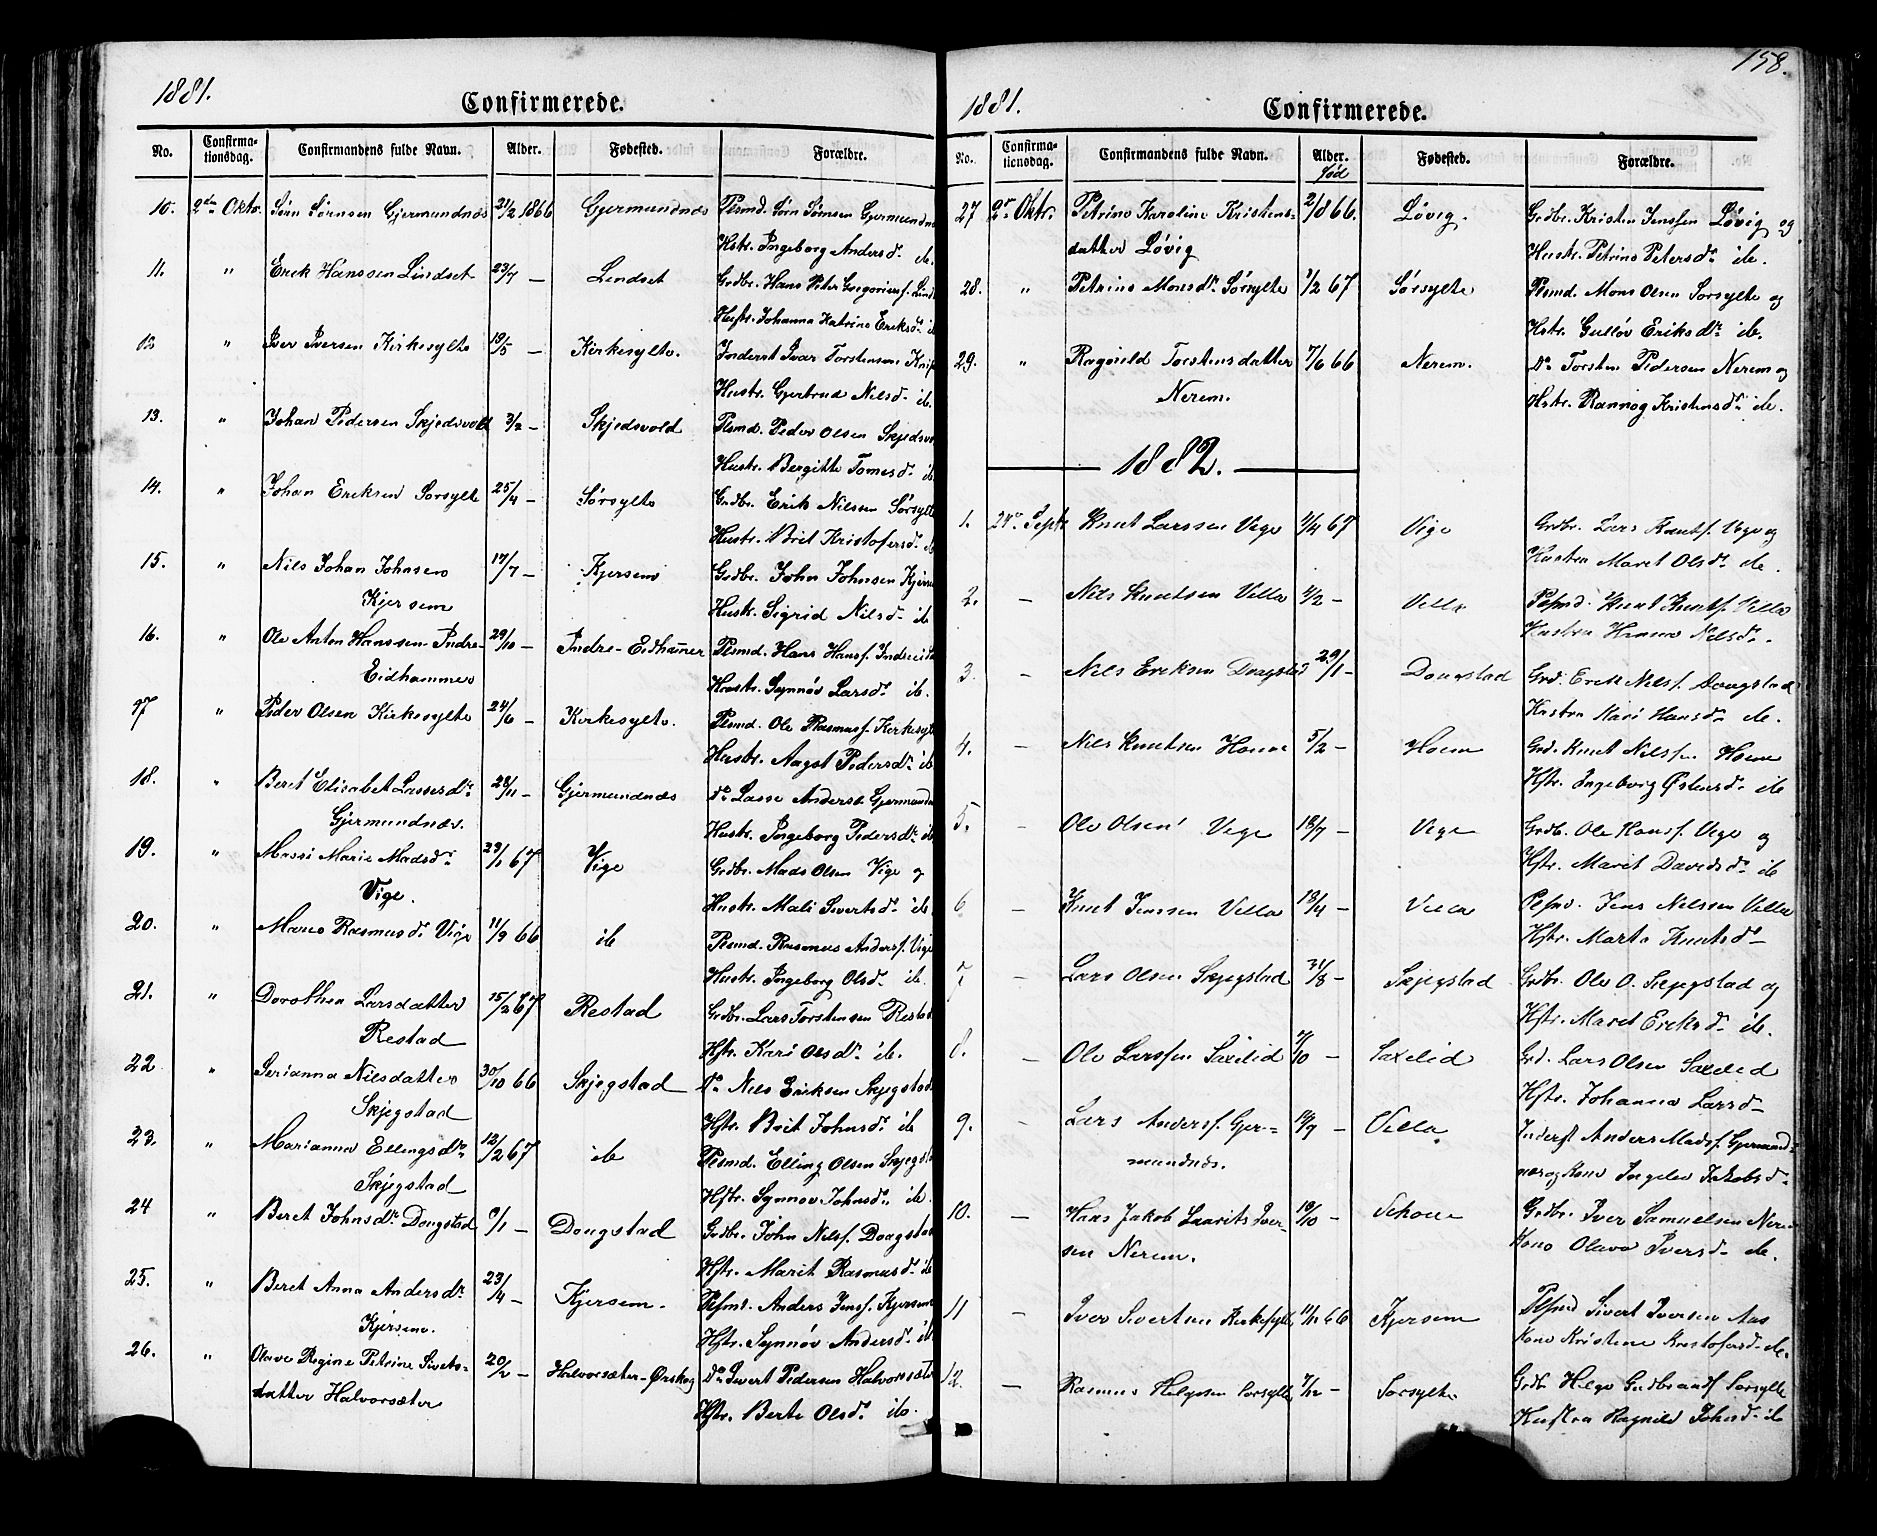 1881.
Confirmerede.
No. Confirma-tionsdag. Confirmandens fulde Navn. Alder. Fødested. Forældre.
10. 2den Oktr. Sørn Sørnsen Gjermundnæs 21/2 1866 Gjermundnæs Plsmd. Sørn Sørnsen Gjermundn
Hstr. Ingeborg Andersdr ib.
11. " Erik Hanssen Lindset 23/7 — Lindset Grdbr. Hans Peter Gregoriusf. Lind
Hustr. Johanna Katrine Eriksdr ib
12 " Iver Iversen Kirkesylte 19/5 — Kirkesylte. Inderst Ivar Torstensen
Hustr. Gjertrud Nilsdr ib.
13. " Johan Pedersen Skjedsvold 3/2 — Skjedsvold Plsmd. Peder Olsen Skjedsvo
Hustr. Bergitte Tomesdr ib
14. " Johan Eriksen Sørsylte 25/4 — Sørsylte Grdbr. Erik Nilsen Sørsylte
Hustr. Brit Kristofersdr ib
15. " Nils Johan Johnsen 17/7 — Kjersem Grdbr. John Johnsen Kjerse
Kjersem Hustr. Sigrid Nilsdr ib
16. " Ole Anton Hanssen Indre- 29/10 — Indre-Eidhammer Plsmd. Hans Hansf. Indreeid
Eidhammer Hustr. Synnøv Larsdr ib.
17 " Peder Olsen Kirkesylte 24/6 — Kirkesylte. Plsmd. Ole Rasmusf. Kirkesyl
Hustr. Aagot Pedersdr ib
18. " Beret Elisabet Lassesdr 28/11 — Gjermundnæs do Lasse Anders. Gjermundn
Gjermundnæs. Hustr. Ingeborg Pedersdr ib
19. " Massi Marie Madsdr 29/1 67 Vige Grdbr. Mads Olsen Vige og
Vige. Hustr. Mali Sivertsdr ib.
20. " Maren Rasmusdr Vige 11/9 66 ib Plsmd. Rasmus Andersf. Vige
Hustr. Ingeborg Olsdr ib.
21. " Dorothea Larsdatter 15/2 67 Restad Grdbr. Lars Torstensen Restad
Restad Hstr. Kari Olsdr ib.
22 " Serianna Nilsdatter 30/10 66 Skjegstad do Nils Eriksen Skjegstad
Skjegstad Hstr. Brit Johnsdr ib
23. " Marianna Ellingsdr 12/2 67 ib Plsmd. Elling Olsen Skjegsta
Skjegstad Hstr. Synnøv Johnsdr ib.
24 " Beret Johnsdr Dougstad /1 — Dougstad Grdbr. John Nilsf. Dougstad
Hstr. Marit Rasmusdr ib
25. " Beret Anna Andersdr 23/4 — Kjersem. Plsmd. Anders Jensf. Kjersem
Kjersem. Hstr. Synnøv Andersdr ib
26. " Olave Regine Petrine Siverts- 20/2 — Halvorsæter-Ørskog do Sivert Pedersen Halvorsæte
datter Halvorsæter Hstr. Berte Olsdr ib.
158.
1881.
Confirmerede.
No. Confirma-tionsdag. Confirmandens fulde Navn. Alder. Fødested. Forældre.
fød
27 2dn Oktr. Petrine Karoline Kristens- 2/8 66. Løvig. Grdbr. Kristen Jenssen Løvig og
datter Løvig Hustr. Petrine Petersdr ib.
28. " Petrine Monsdr Sørsylte 1/2 67 Sørsylte Plsmd. Mons Olsen Sørsylte og
Hstr. Gulløv Eriksdr ib.
29. " Ragnild Torstensdatter 7/6 66 Nerem. do Torsten Pedersen Nerem og
Nerem. Hstr. Rannog Kristensdr ib.
1882.
1. 24de Septr Knut Larssen Vige 1/4 67 Vige Grdbr. Lars Knutsf. Vige og
Hustru Maret Olsdr ib.
2. — Nils Knutsen Villa 4/2 — Villa Plsmd. Knut Knutsf. Villa
Hustru Hanna Nilsdr.
3. — Nils Eriksen Dougstad 29/1 — Dougstad Grd. Erik Nilsf. Dougstad
Hustru Kari Hansdr ib.
4. — Nils Knutsen Hoem 5/2 — Hoem Grd. Knut Nilssen Hoem
Hstr. Ingeborg Østensdr ib
5. — Ole Olsen Vige 18/7 — Vige Grdb. Ole Hansf. Vige og
Hstr. Marit Davidsdr ib
6 — Knut Jenssen Villa 13/4 — Villa Plsm. Jens Nilssen Villa
Hstr. Marta Knutsdr
7 — Lars Olsen Skjegstad 31/8 — Skjegstad Grdb. Ole O. Skjegstad og
Hstr. Maret Eriksdr ib.
8. — Ole Larssen Saxelid /10 — Saxelid Grd. Lars Olsen Saxelid
Hstr. Johanna Larsd
9. — Lars Andersf. Gjer- /9 — Villa. Inderst Anders Madsf. Gjermund-
mundnæs. næs og Kone Ingeleiv Jakobsd
10. — Hans Jakob Laurits Iver- 19/10 — Grdbr. Iver Samuelsen Nerem
sen Nerem. Kone Olava Iversdr ib.
11 — Iver Sivertsen Kirkesylte 11/11 66 Kjersem Plsmd Sivert Iversen Aas
Kone Kristine Kristofersd ib.
12. — Rasmus Helgesen Sørsylte 7/12 — Sørsylte Grdb. Helge Gudbrandf Sørsylte
Hustru Ragnild Johnsd ib